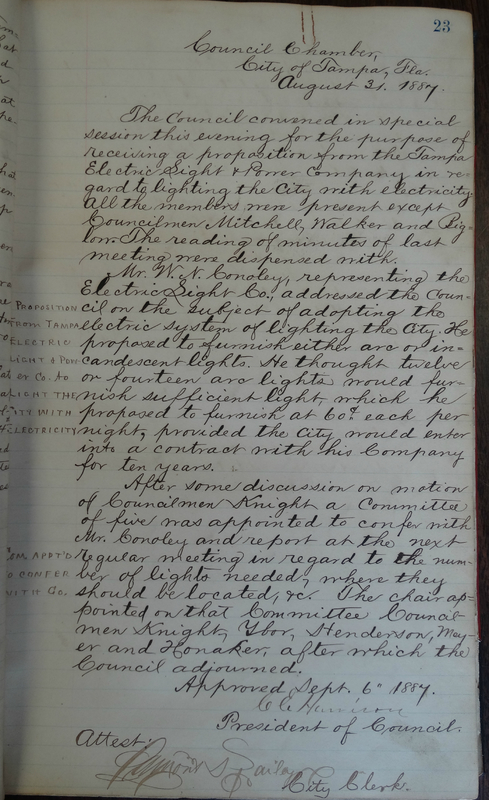 23
Council Chamber,
City of Tampa, Fla.
August 31. 1887.
The Council convened in special
session this evening for the purpose of
receiving a proposition from the Tampa
Electric Light & Power Company in re-
gard to lighting the City with electricity.
All the members were present except
Councilmen Mitchell, Walker and Big-
low. The reading of minutes of last
meeting were dispensed with.
Mr. W. N. Conoley, representing the
Electric Light Co., addressed the Coun-
cil on the subject of adopting the
electric system of lighting the City. He
proposed to furnish either arc or in-
candescent lights. He thought twelve
or fourteen arc lights would fur-
nish sufficient light, which he
proposed to furnish at 60¢ each per
night, provided the City would enter
into a contract with his Company
for ten years.
After some discussion on motion
of Councilmen Knight a Committee
of five was appointed to confer with
Mr. Conoley and report at the next
regular meeting in regard to the num-
ber of lights needed, where they
should be located, &c. The chair ap-
pointed on that Committee Council-
men Knight, Ybor, Henderson, May-
er and Honaker, after which the
Council adjourned.
Approved Sept. 6" 1887.
C C Harrison
President of Council.
Attest:
City Clerk.
PROPOSITION
FROM TAMPA
ELECTRIC
LIGHT & POW
ER CO. TO
LIGHT THE
CITY WITH
ELECTRICITY
COM. APPT'D
TO CONFER
WITH CO.